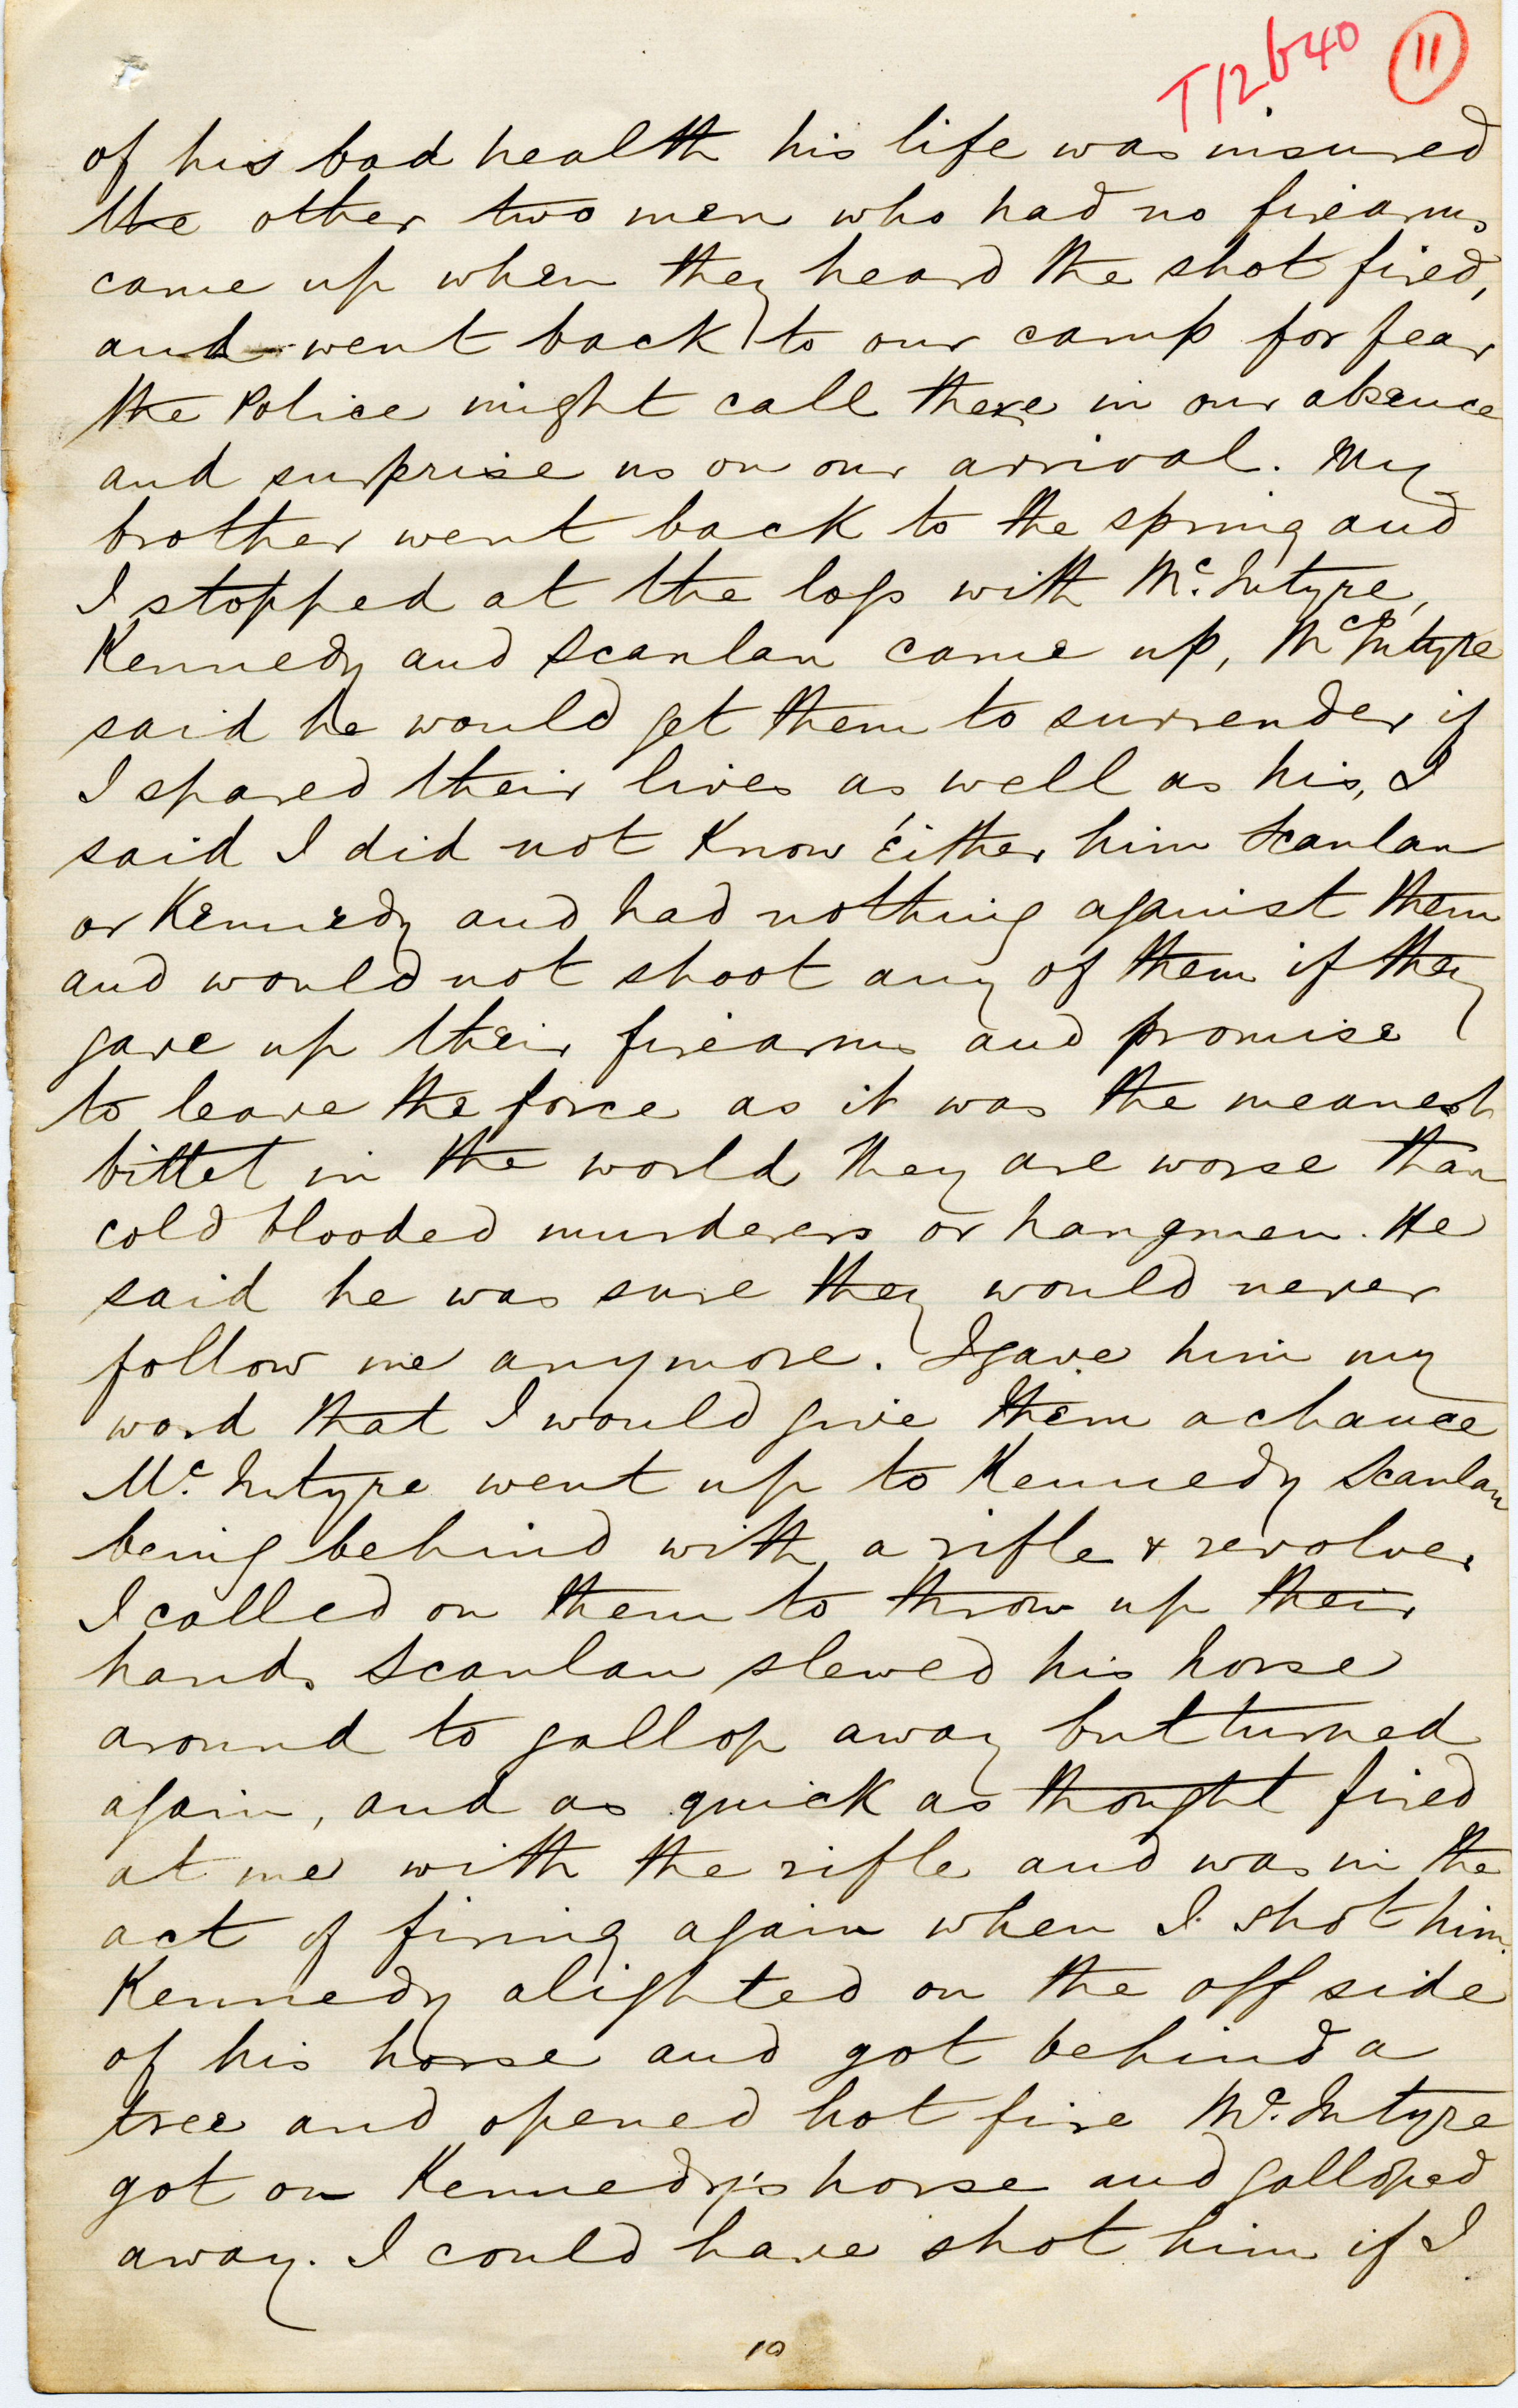 T12640 11
of his bad health his life was insured
the other two men who had no firearms
came up when they heard the shot fired,
and went back to our camp for fear
the Police might call there in our absence
and surprise us on our arrival. My
brother went back to the spring and
I stopped at the logs with Mc. Intyre,
Kennedy and Scanlan came up, McIntyre
said he would get them to surrender if
I spared their lives as well as his, I
said I did not Know either him Scanlan
or Kennedy and had nothing against them
and would not shoot any of them if they
gave up their firearms and promise
to leave the force as it was the meanest
bittet in the world they are worse than
cold blooded murderers or hangmen. He
said he was sure they would never
follow me anymore. I gave him my
word that I would give them a chance
Mc. Intyre went up to Kennedy Scanlan
being behind with a rifle & revolver
I called on them to throw up their
hands Scanlan slewed his horse
around to gallop away but turned
again, and as quick as thought fired
at me with the rifle and was in the
act of firing again when I shot him.
Kennedy alighted on the off side
of his horse and got behind a
tree and opened hot fire Mc. Intyre
got on Kennedy's horse and galloped
away. I could have shot him if I
10